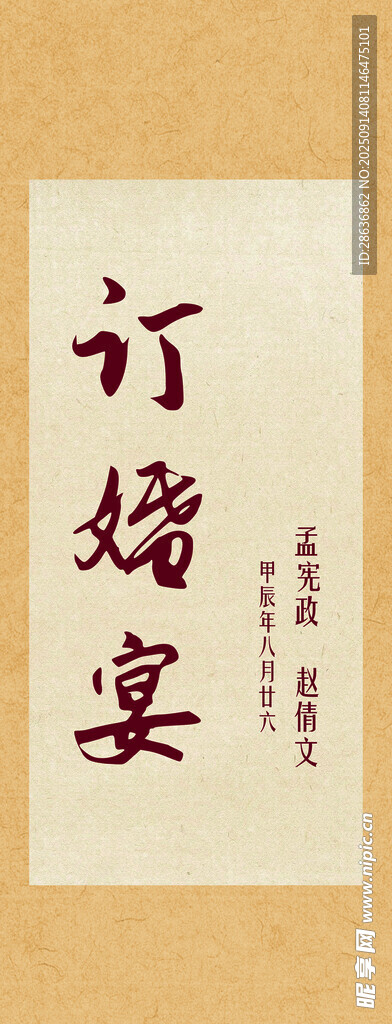 订婚宴
孟宪政 赵倩文
甲辰年八月廿六
ID:28636862 NO:20250914081146475101
昵享网 www.nipic.cn